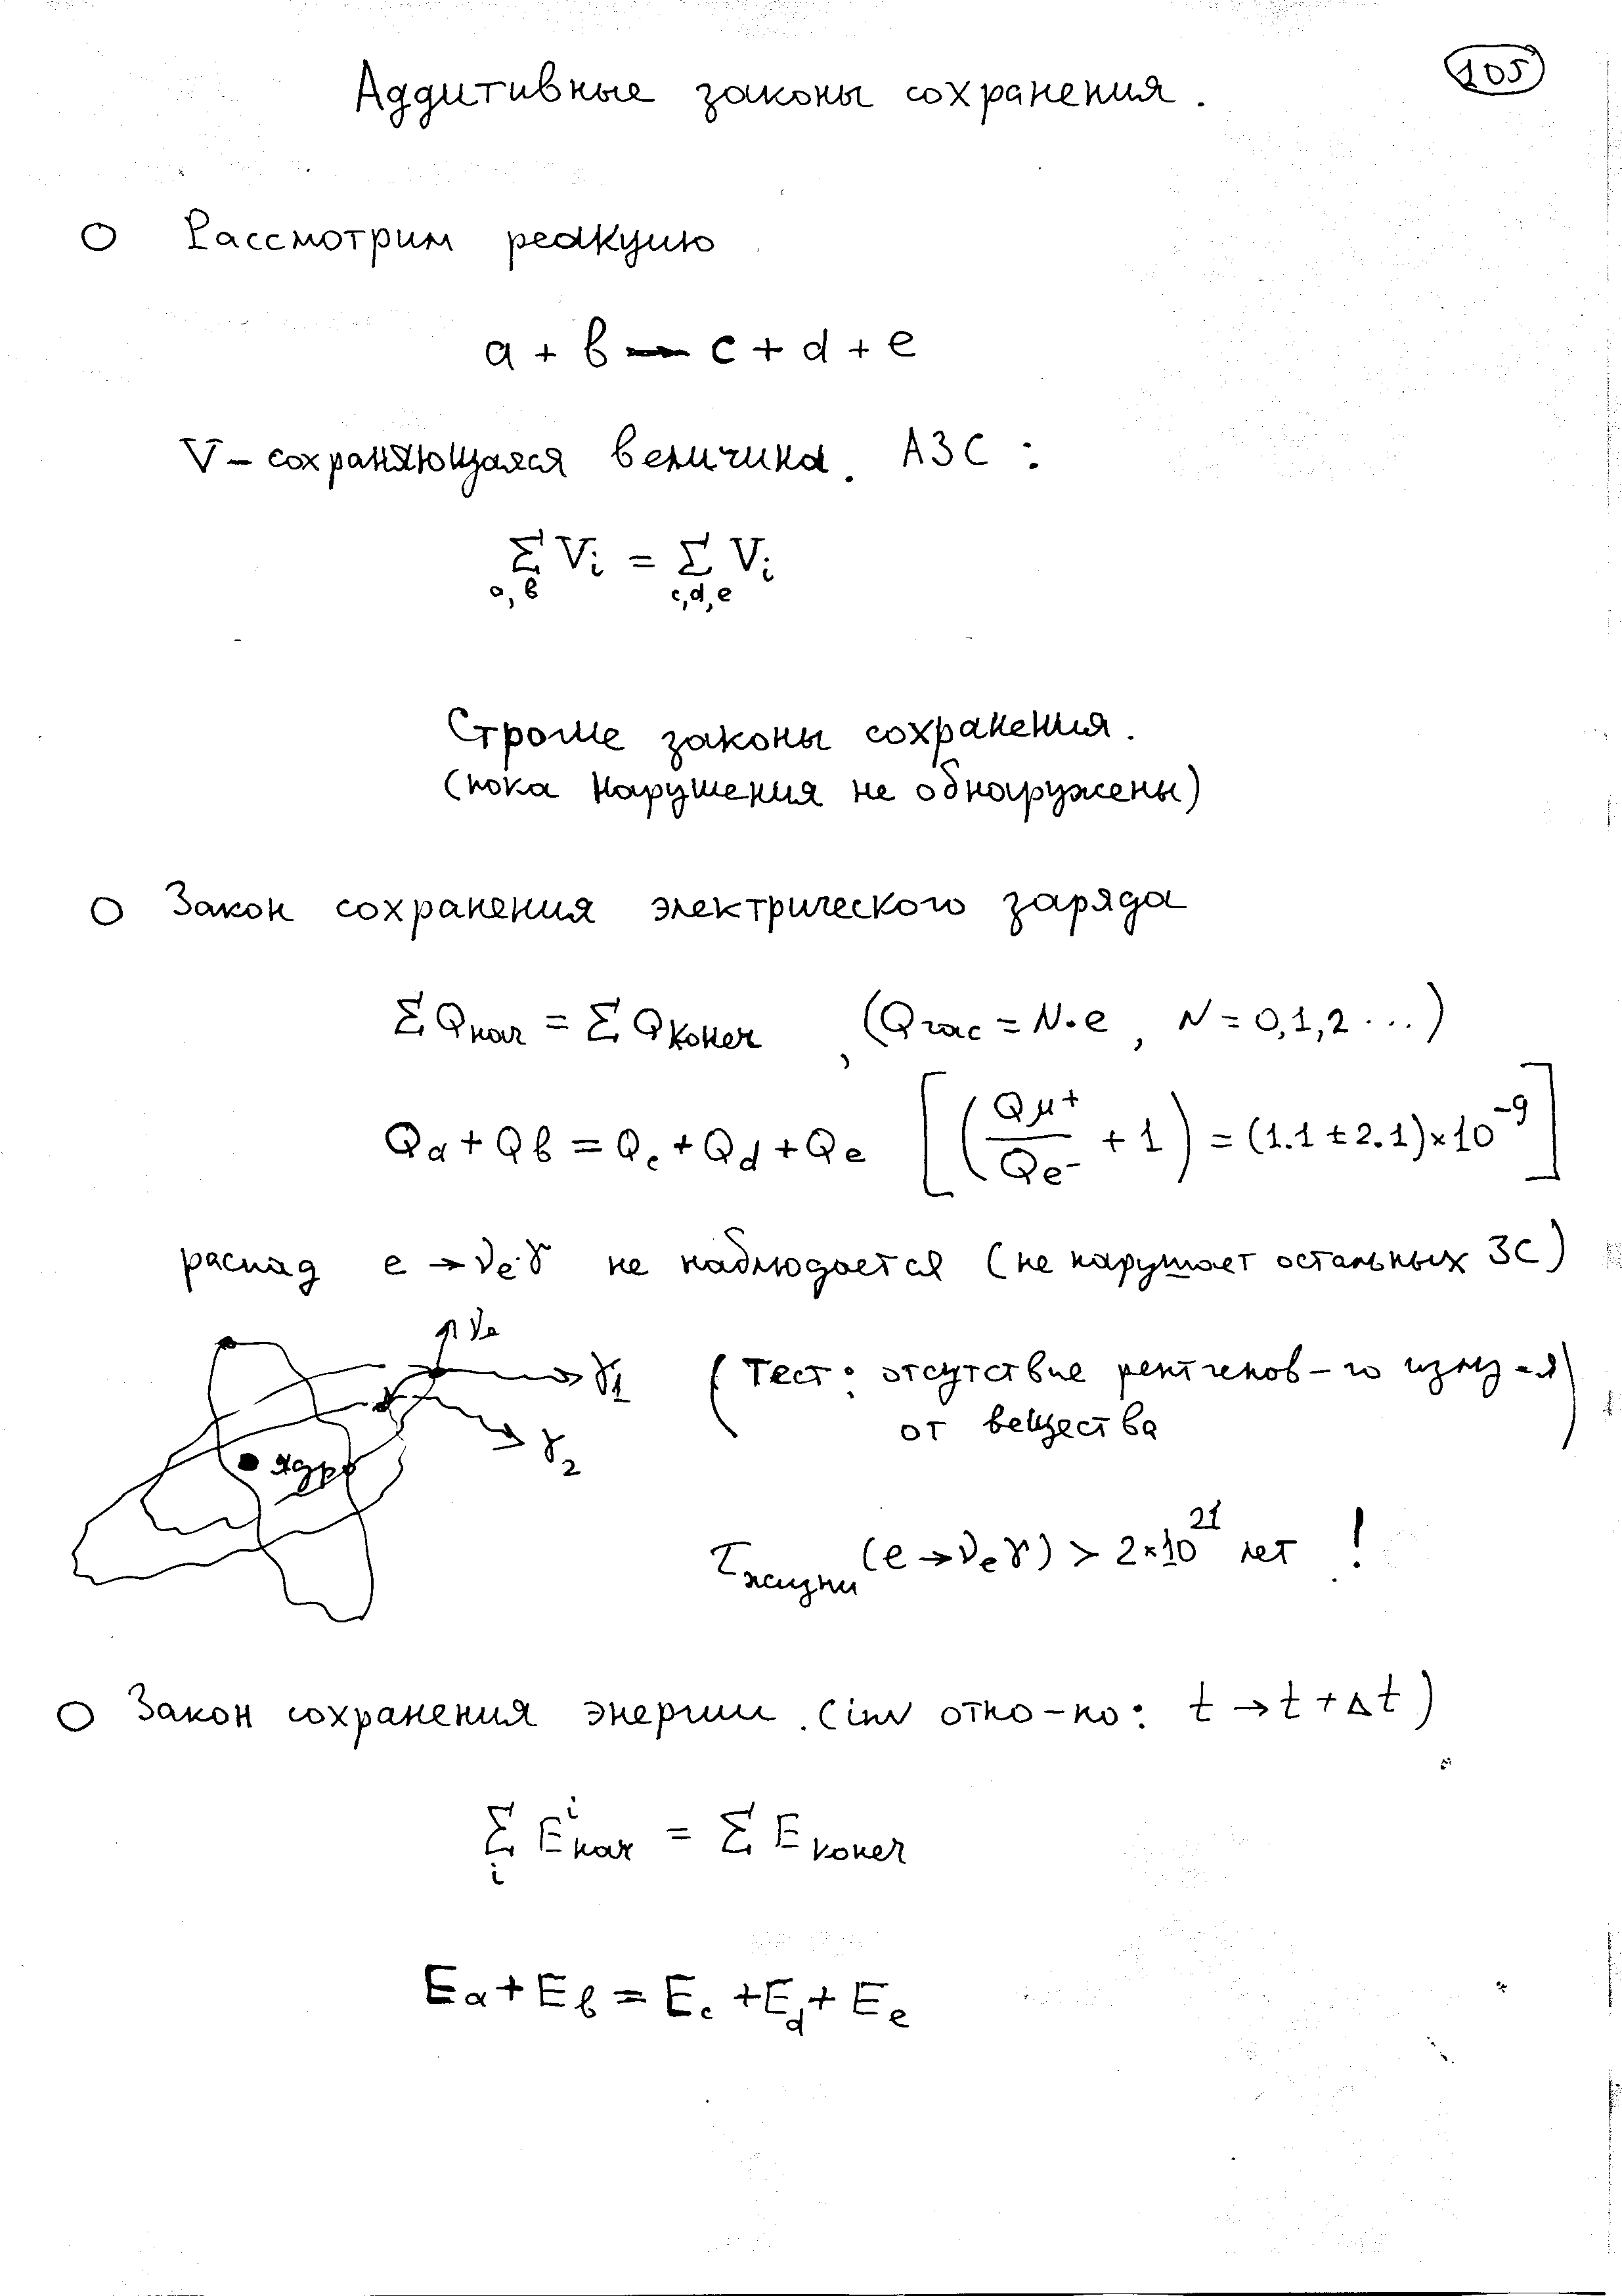 105
Аддитивные законы сохранения.
○ Рассмотрим реакцию
a + b — c + d + e
V – сохраняющаяся величина. АЗС :
∑ Vi = ∑ Vi
a, b c,d,e
Строгие законы сохранения.
(пока нарушения не обнаружены)
○ Закон сохранения электрического заряда
∑ Qнач = ∑ Qконеч , (Qчас = N·e , N = 0,1,2 ...)
Qa + Qb = Qc + Qd + Qe [(Qμ+/Qe- + 1) = (1.1 ± 2.1)×10⁻⁹]
распад e → νe γ не наблюдается (не нарушает остальных ЗС)
νe
γ1 (Тест: отсутствие рентгенов-го излу-я)
γ2 от вещества
ядро
τжизни (e → νe γ) > 2×10²¹ лет !
○ Закон сохранения энергии. (inv отно-но: t → t + Δt)
∑i Eⁱнач = ∑ Eконеч
Ea + Eb = Ec + Ed + Ee